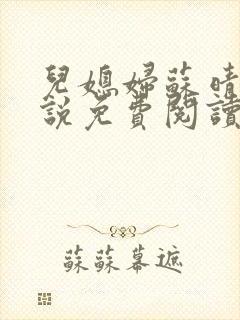 兒媳婦蘇晴
說免費閱讀
蘇蘇幕遮